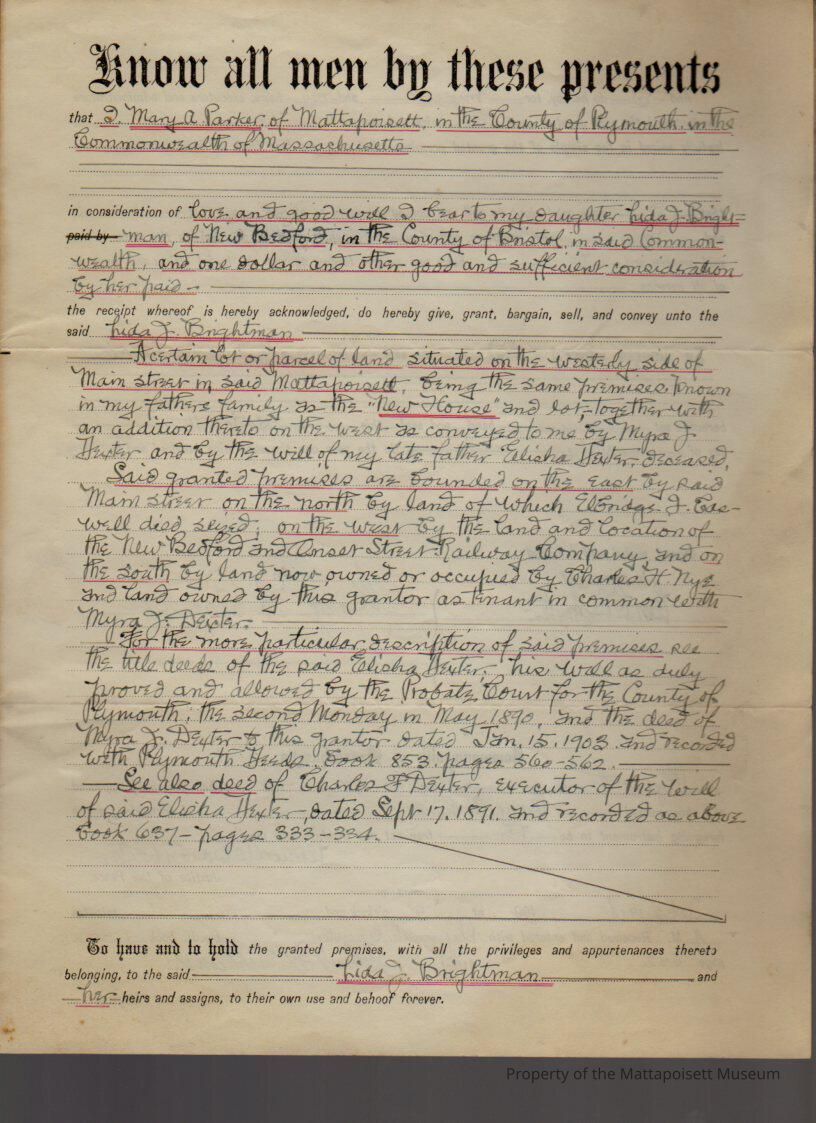 Know all men by these presents
that I, Mary A Parker, of Mattapoisett, in the County of Plymouth, in the
Commonwealth of Massachusetts
in consideration of love and good will I bear to my daughter Lida J. Bright=
paid by man, of New Bedford, in the County of Bristol, in said Common-
wealth, and one dollar and other good and sufficient consideration
by her paid -
the receipt whereof is hereby acknowledged, do hereby give, grant, bargain, sell, and convey unto the
said Lida J. Brightman
A certain lot or parcel of land situated on the westerly side of
Main street in said Mattapoisett, being the same premises known
in my fathers family as the "New House" and lot, together with
an addition thereto on the west as conveyed to me by Myra J.
Dexter and by the will of my late father Elisha Dexter, deceased.
Said granted premises are bounded on the east by said
Main street on the north by land of which Elbridge J. Cas-
well died seized, on the west by the land and location of
the New Bedford and Onset Street Railway Company, and on
the south by land now owned or occupied by Charles H. Nye
and land owned by this grantor as tenant in common with
Myra J. Dexter.
For the more particular description of said premises see
the title deeds of the said Elisha Dexter, his will as duly
proved and allowed by the Probate Court for the County of
Plymouth, the second Monday in May 1890, and the deed of
Myra J. Dexter to this grantor dated Jan. 15. 1903 and recorded
with Plymouth Deeds. Book 853. pages 560-562.
See also deed of Charles F Dexter, executor of the will
of said Elisha Dexter, dated Sept 17. 1891. and recorded as above
Book 637- pages 333-334.
To have and to hold the granted premises, with all the privileges and appurtenances thereto
belonging, to the said Lida J. Brightman and
her heirs and assigns, to their own use and behoof forever.
Property of the Mattapoisett Museum